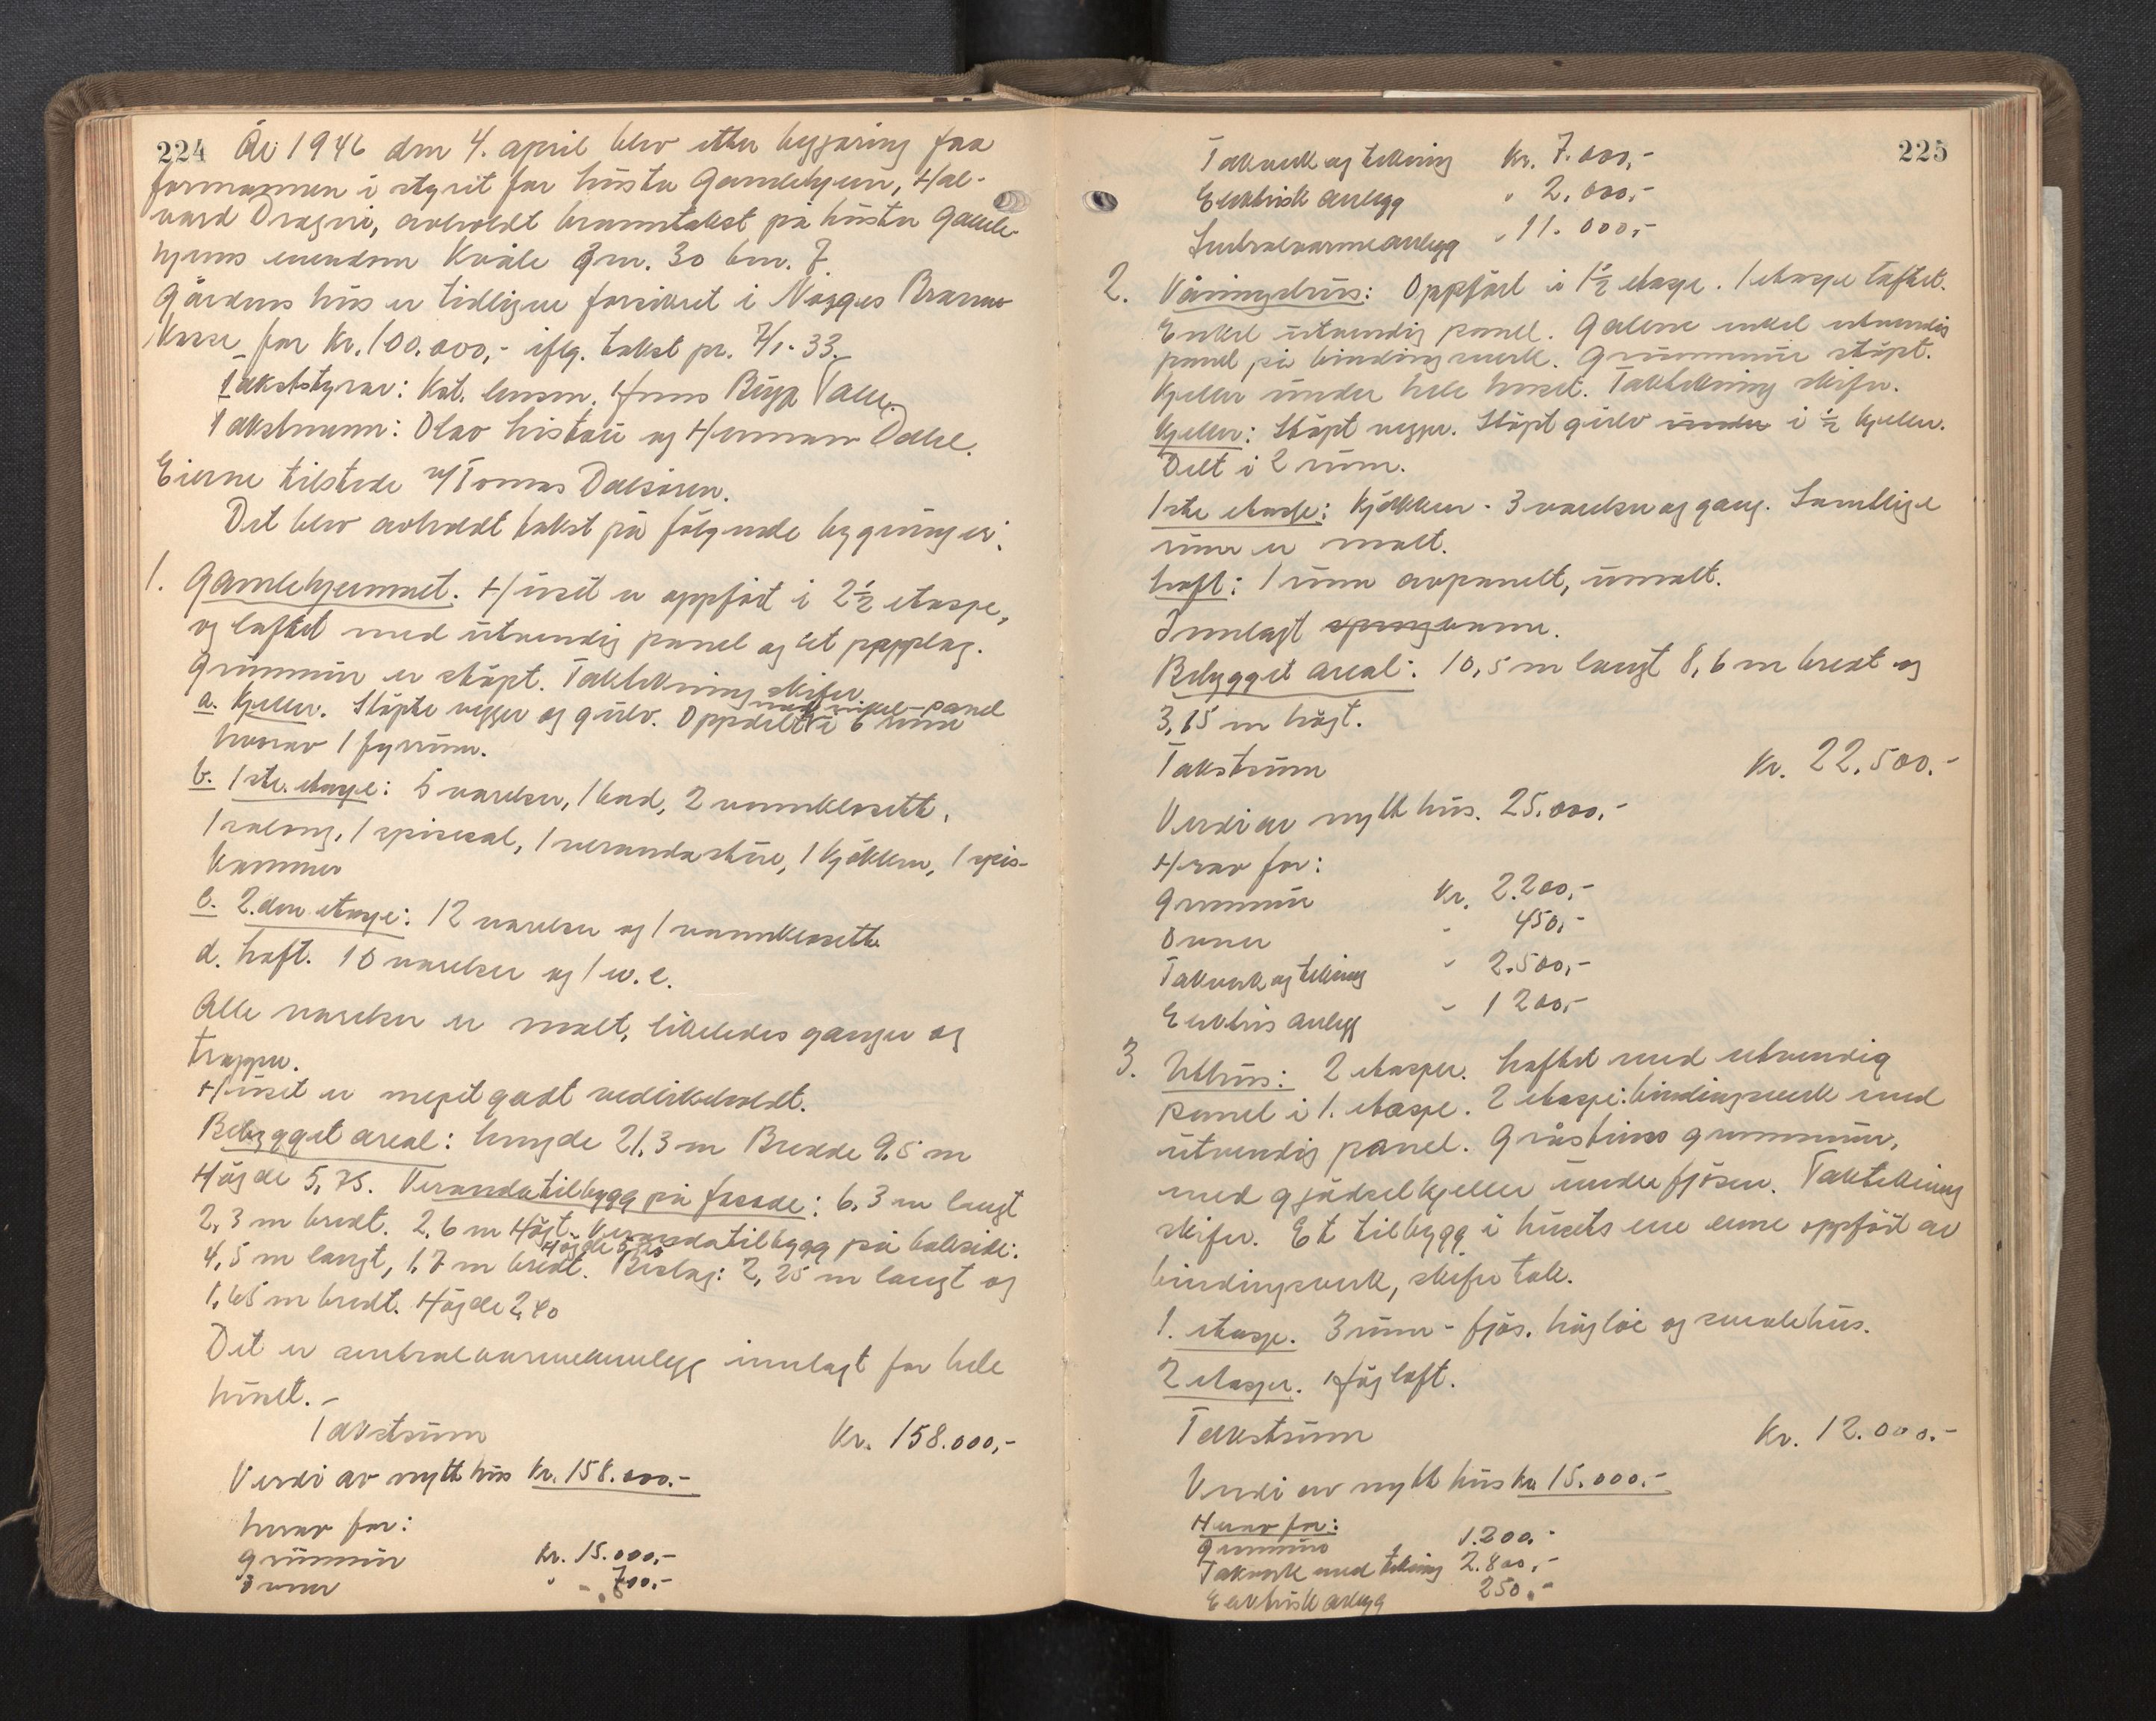 224
År 1946 den 4. april blev etter begjæring fra
formannen i styret for Lüster Gamlehjem, Hal-
vard Dragni, avholdt branntakst på Lüster Gamle-
hjems eiendom Kvåle gnr. 30 bnr. 7.
Gårdens hüs er tidligere forsikret i Norges Branns-
kasse for Kr. 100.000,- iflg. takst pr. 7/1-33.
Takststyrar: Kst. lensm. Jens Bugge
Takstmenn: Olav and Herman Dahle.
Eierne tilstede v/Tomas Dalsøren.
Det blev avholdt takst på følgende bygninger:
1. Gamlehjemmet. Hüset er oppført i 2½ etasje,
og laftet med ütvendig panel og et papplag.
Grünnmür er støpt. Taktekning skifer
med enkel panel
a. Kjeller. Støpte vegger og gülv. Oppdelt i 6 rüm
hvorav 1 fyrrüm.
b. 1ste. etasje: 5 værelser, 1 bad, 2 vannklosett,
1 salong, 1 spisesal, 1 verandastüe, 1 kjøkken, 1 spis-
kammer
c. 2.den etasje: 12 værelser og 1 vannklosett
d. Loft. 10 værelser og 1 w.c.
Alle værelser er malt, likeledes ganger og
trapper.
Hüset er meget godt vedlikeholdt.
Bebygget areal: Lengde 21,3 m Bredde 9,5 m
Højde 5,75. Verandatilbygg på fasade: 6,3 m langt
2,3 m bredt. 2,6 m Højt. Verandatilbygg på bakside:
Højde
4,5 m langt, 1,7 m bredt. Beslag: 2,25 m langt og
1,65 m bredt. Højde 2,40
Det er sentralvarmeanlegg innlagt for hele
hüset.-
Takstsüm Kr. 158.000,-
Verdi av nytt hüs Kr. 158.000.-
herav for:
Grünnmür Kr. 15.000,-
Ovner " - 700,-
225
Takverk og tekning Kr. 7.000,-
Elektrisk anlegg " 2.000,-
Sentralvarmeanlegg " 11.000,-
2. Våningshüs: Oppført i 1½ etasje. 1 etasje laftet.
Enkel ütvendig panel. Gavlene enkel utvendig
panel på bindingsverk. Grünnmür støpt.
Kjeller ünder hele hüset. Taktekning skifer.
Kjeller: Støpt vegger. Støpt gülv ünder i ½ kjeller.
Delt i 2 rüm.
1ste etasje: Kjøkken - 3 værelser og gang. Samtlige
rüm er malt.
Loft: 1 rüm avpanelt, ümalt.
Innlagt springvann.
Bebygget areal: 10,5 m langt 8,6 m bredt og
3,65 m højt.
Takstsüm Kr. 22.500.-
Verdi av nytt hüs. 25.000,-
Herav for:
Grünnmür Kr. 2.200,-
Ovner " 450,-
Takverk og tekning " 2.500,-
Elektris anlegg " 1200,-
3. Uthüs: 2 etasjer. Laftet med utvendig
panel i 1. etasje. 2 etasje: bindingsverk med
ütvendig panel. Gråsteins grünnmür,
med gjødselkjeller ünder fjøsen. Taktekning
skifer. Et tilbygg i hüsets ene enne oppført av
bindingsverk, skifer tak.
1. etasje. 3 rüm - fjøs, højløe og smalehüs.
2 etasjer. Højloft.
Takstsüm Kr. 12.000.-
Verdi av nytt hüs kr 15.000.-
Herav for:
Grünnmür 1.200.-
Takverk med tekning 2.800.-
Elektrisk anlegg 250.-